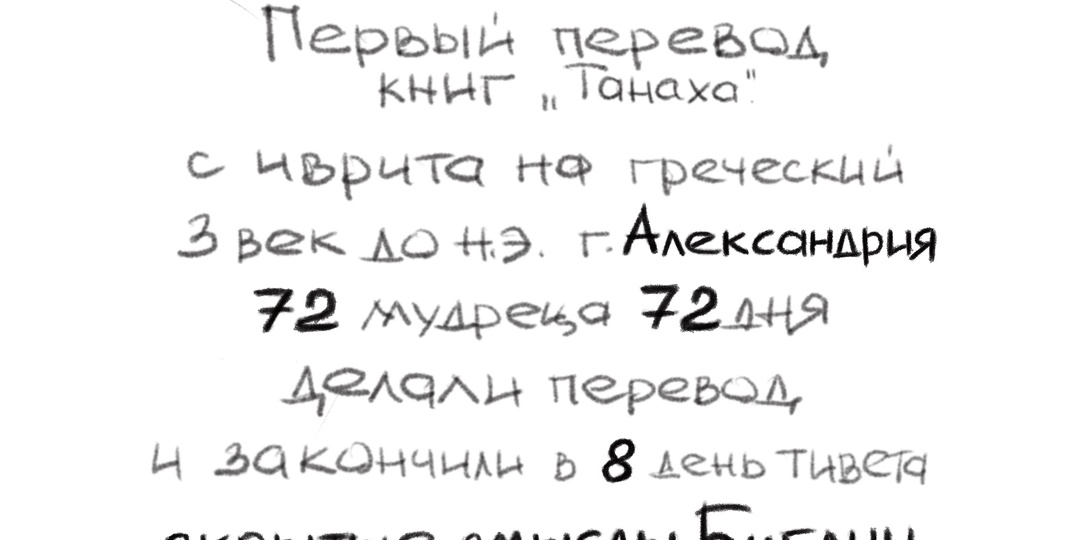 Первый перевод
книг „Танаха"
с иврита на греческий
3 век до н.э. г. Александрия
72 мудреца 72 дня
делали перевод
и закончили в 8 день тивета
Библии